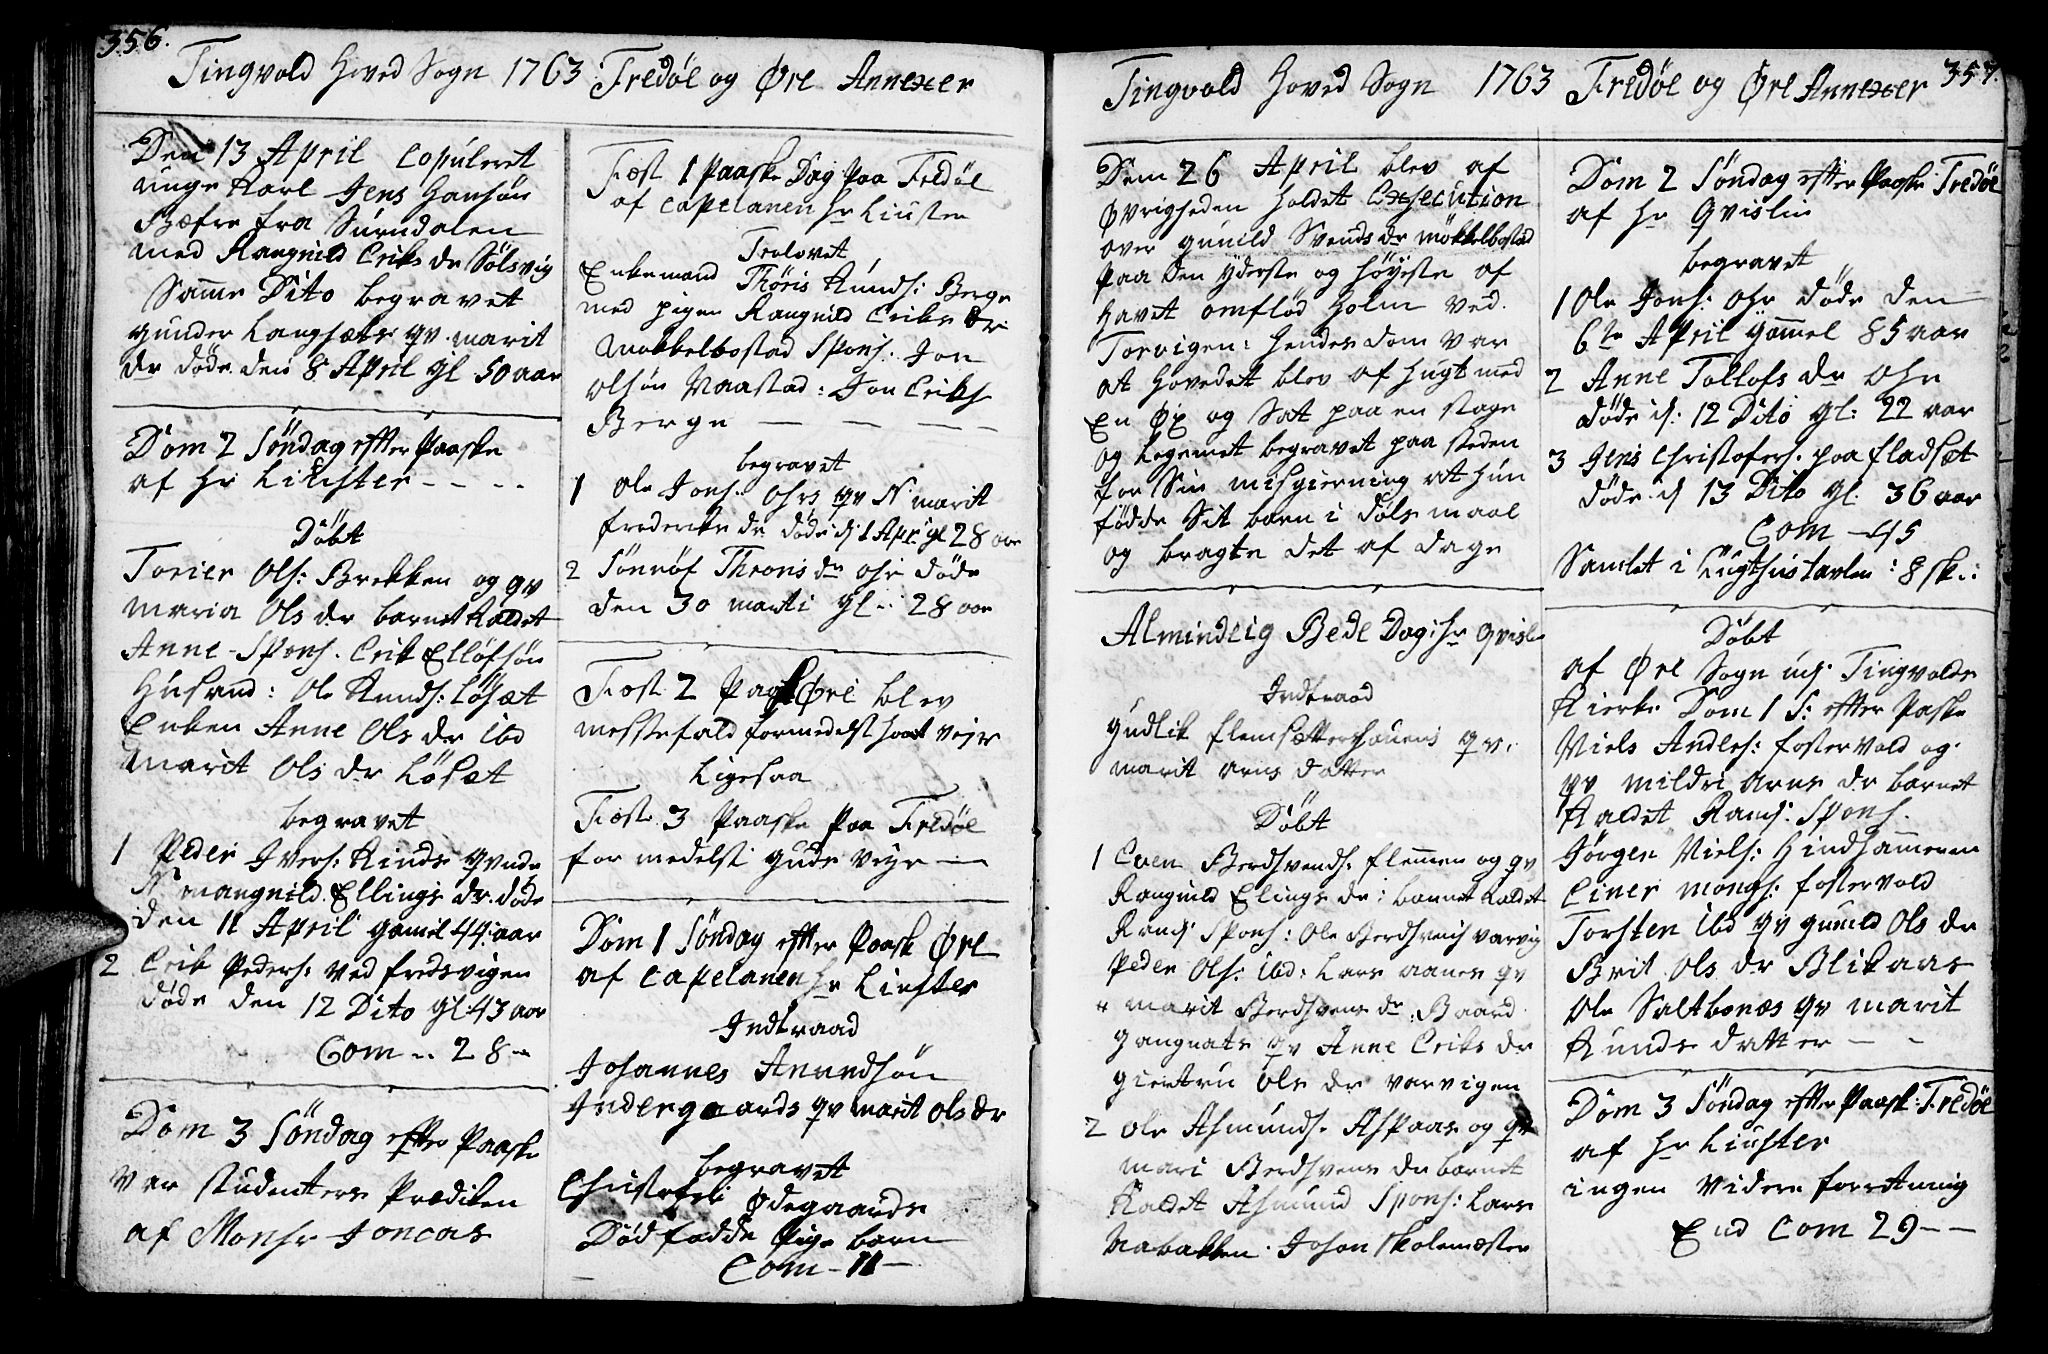 356.
Tingvold Hoved Sogn 1763 Fredøl og Øre Annexer
Den 13 April Copuleret
unge Karl Jens Hansøn
Bæfre fra Surndalen
med Rangnild Eriks dr Sølsvig
Samme Dito begravet
gunder Langsæts qv marit
dr døde den 8 April gl 50 aar
Dom 2 Søndag efter Paaske
af Hr Liuchter - - - -
Døbt
Torier Ols: Brekken og qv
maria Ols dr barnet kaldet
Anne - Spons. Erik Ellefsøn
Husand: Ole Knuds: Løsæt
Enken Anne Ols dr ibd
Marit Ols dr Løsæt
begravet
1 Peder Ivers: Kinds qvinde
N mangnild Ellings dr. døde
den 11 April gamel 44: aar
2 Erik Peders: ved fredsvigen
døde den 12 Dito gl 43 aar
Com .. 28 -
Dom 3 Søndag efter Paaske
var Studenters Prædiken
af Monsr Joncas
Fæst 1 Paaske Dag paa Fredøl
af Capelanen Hr Liuster
Trolovet
Enkemand Thøris Knuds: Berge
med pigen Rangnild Eriks dr
Mokkelbostad Spons. Jon
olsøn Vaastad: Jon Eriks
Berge — — — —
begravet
1 Ole Jons. Ohrs qv N marit
frederiks dr døde d 1 Apr: gl 28 aar
2 Sønnøf Throns dr ohr døde
den 30 marti gl .. 28 aar
Fæst 2 Paask Øre blev
messefald formedelst haat veyr
Ligesaa
Fæst 3 Paaske paa Fredøl
for medelst guds veyr —
Dom 1 Søndag efter Paask Øre
af Capelanen Hr Liuster
Indtraad
Johannes Anundsøn
Indergaards qv marit Ols dr
begravet
Christofer Ødegaards
Død fødde Pige barn
Com - 11 -
357.
Tingvold Hoved Sogn 1763 Fredøl og Øre Annexer
Dem 26 April blev af
Øvrigheden holdet Exsecution
over gunild Svends dr Møkkelbostad
paa den yderste og høyeste af
havet omflød holm ved
Torvigen: hendes Dom var
at hovedet blev af hugt med
En Øx og Sat paa en stage
og Legemet begravet paa steden
for Sin misgierning at hun
fødde Sit barn i døls maal
og bragte det af dage
Almindlig Bede Dag: Hr qvisl
Indtraad
gudlik flemsætterhauens qv.
marit arns datter
Døbt
1 Even Berdsvends: flemmen og qv
Rangnild Elings dr: barnet kaldet
Rand: Spons: Ole Berdsvens varvig
Peder Ols: ibd: Lars aanes qv
marit Berdsvens dr. Baard
gangnats qv Anne Eriks dr
giertru Ols dr varvigen
2 Ole Asmunds. Aspaas og qv
mari Berdsvens dr barnet
kaldet Asmund Spons: Lars
Nabakken. Johan Skolemæster
Dom 2 Søndag efter Paaske Fredøl
af Hr Qvislin
begravet
1 Ole Jons: ohr døde den
6te April gammel 85 aar
2 Anne Tollofs dr ohr
døde d: 12 Dito gl: 22 aar
3 Jens Christofers. paa fladsæt
døde d 13 Dito gl. 36 aar
Com - 45
Samlet i Tugthustavlen: 8 sk.:
Døbt
af Øre Sogn udj Tingvolds
kierke Dom 1 S: efter Paske
Niels Andles: fostervold og
qv mildri arns dr barnet
kaldet Rand: Spons.
Jørgen Niels: Hindhammeren
Einer mongs: fostervold
Torsten ibd qv gunild Ols dr
Brit Ols dr Blikaas
Ole Saltbonæs qv marit
Knuds datter - -
Dom 3 Søndag efter Paask: Fredøl
af Hr Liuster
ingen videre forretning
End Com 29 - -